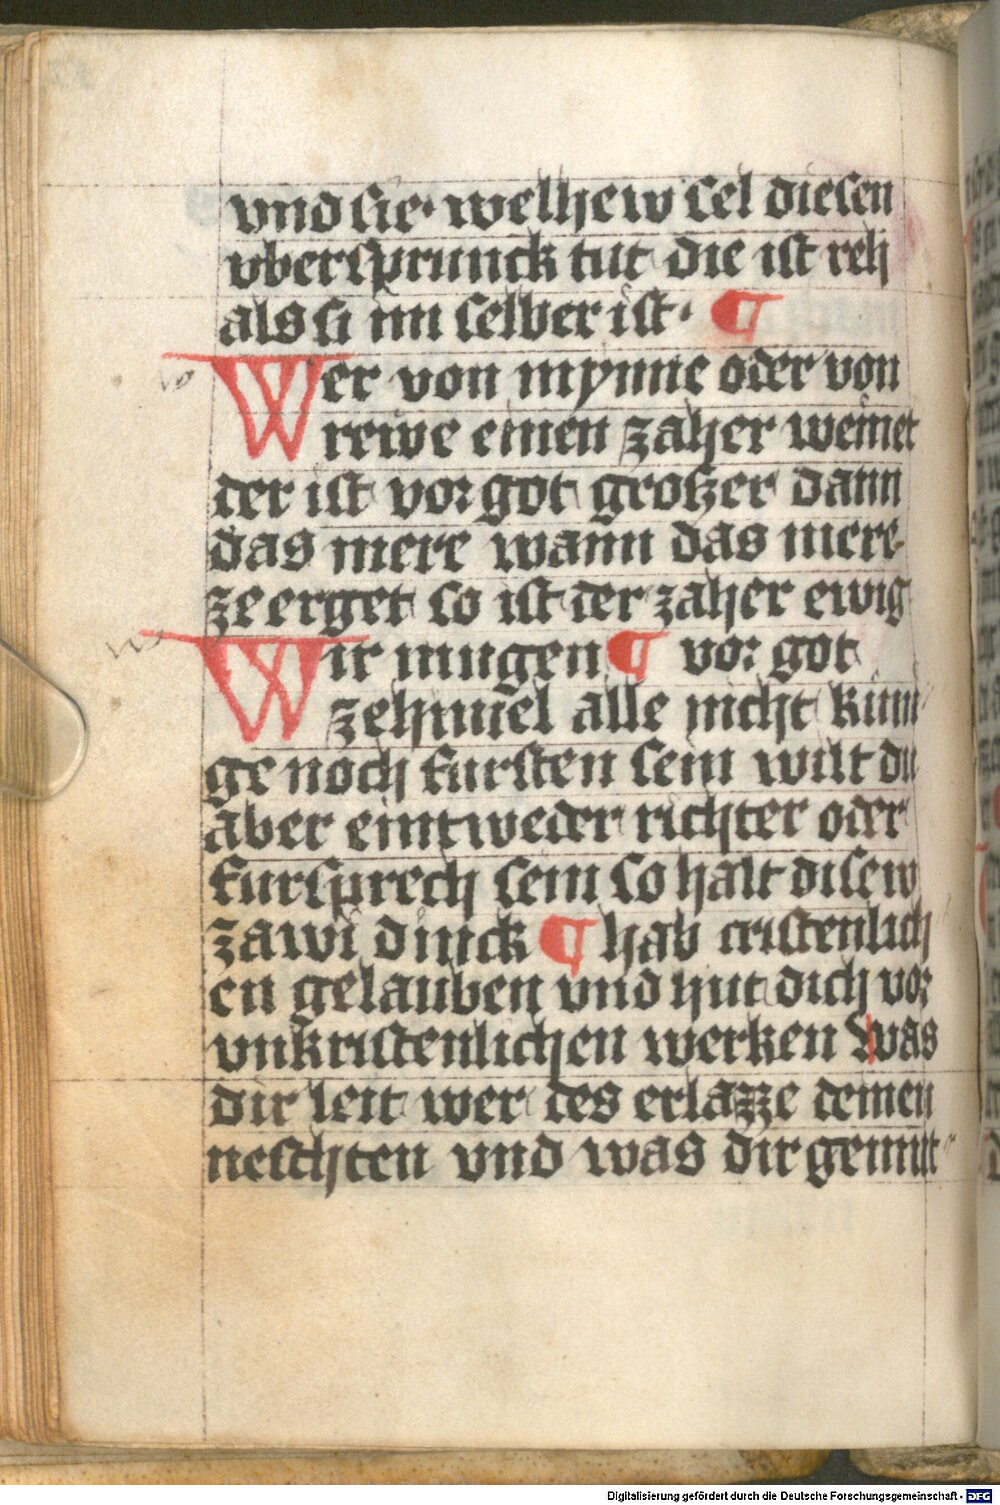 vnd sie· welhew sel diesen
vbersprunck tut die ist reh
als si im selber ist· ¶
Wer von mynne oder von
reiwe einen zaher weinet
der ist vor got groszer dann
das mere wann das mere
zeerget so ist der zaher ewig
Wir mugen ¶ vor got
zehimel alle nicht kuni
ge noch fursten sein wilt du
aber eintweder richter oder
fursprech sein so halt disew
zawi dinck ¶ hab cristenlich
en gelauben vnd hut dich vor
vnkristenlichen werken Was
dir leit wer des erlazze deinen
neschten vnd was dir gemut
Digitalisierung gefördert durch die Deutsche Forschungsgemeinschaft - DFG